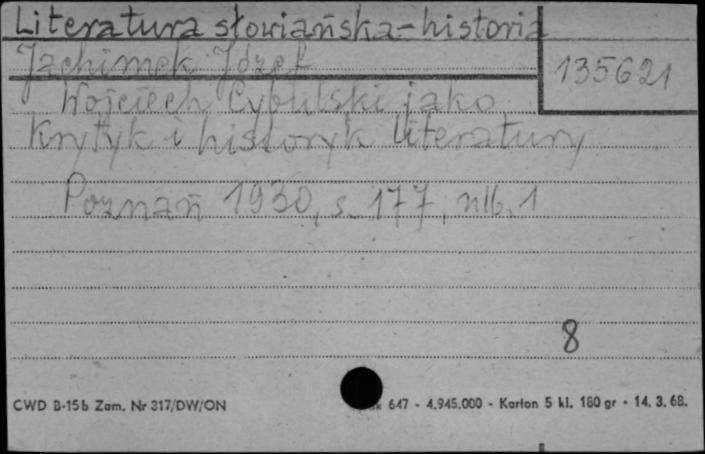 Literatura słowiańska-historia
Jachimek Józef
135621
Wojciech Cybulski jako
Krytyk i historyk literatury
Poznań 1930, s. 177, nlb. 1
8
CWD B-15b Zam. Nr 317/DW/ON
647 - 4.945.000 - Karton 5 kl. 180 gr - 14. 3. 68.